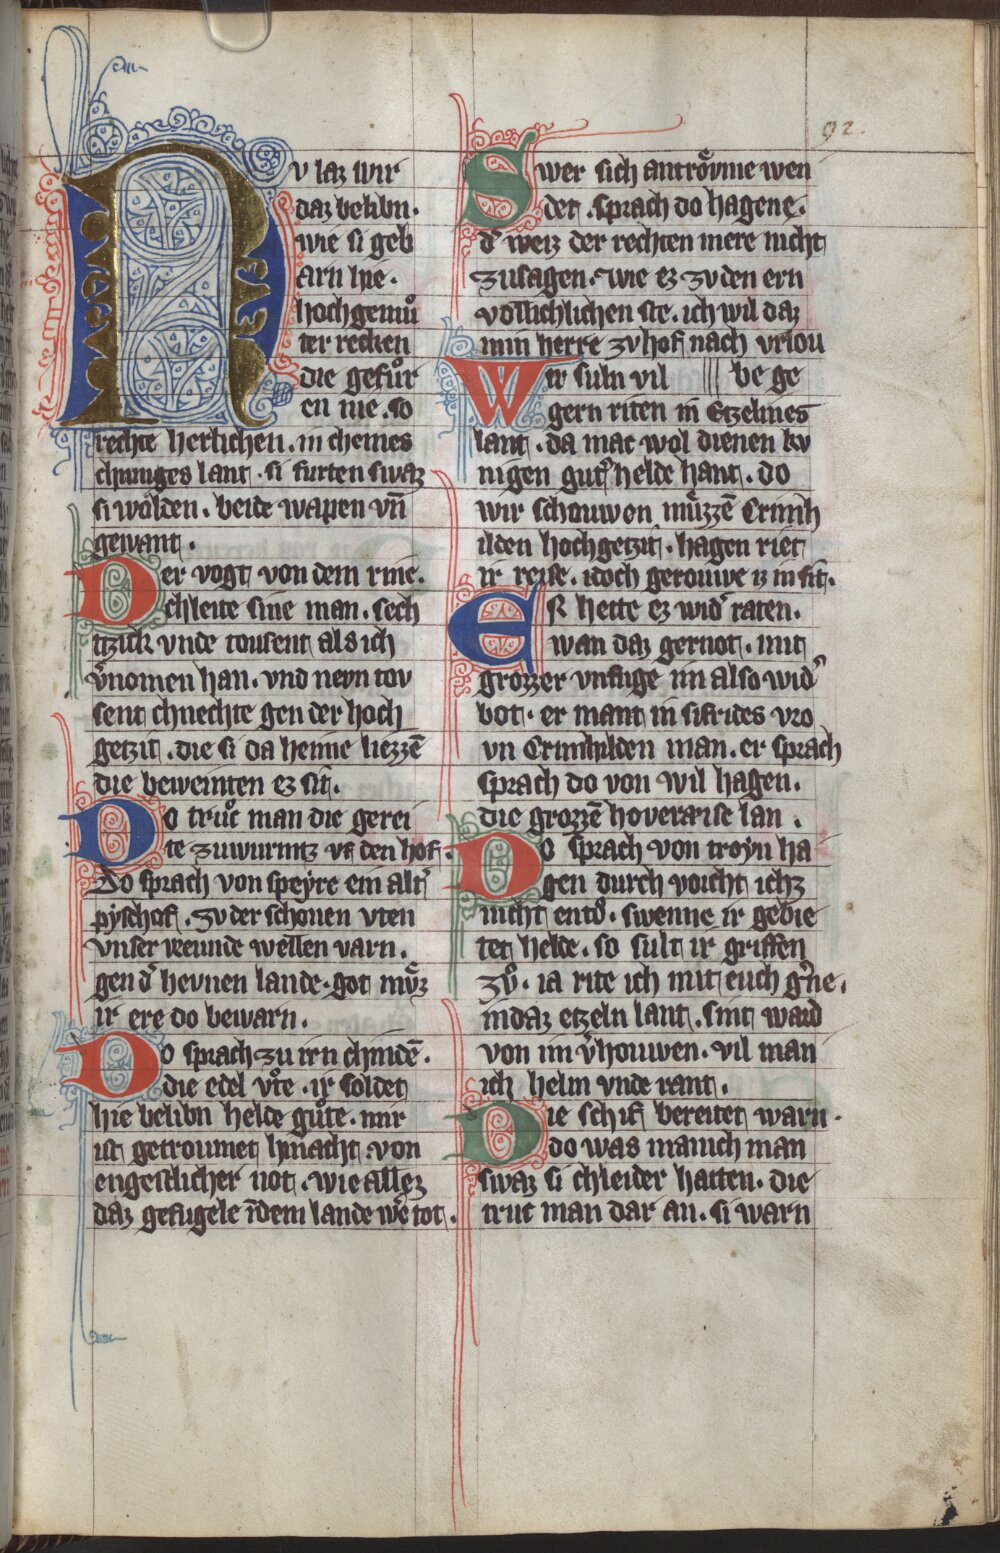 92.
Nu laz wir
daz belibn.
wie si geb
arn hie.
hochgemuͦ
ter recken
die gefuͦr
en nie. so
rechte herlichen. in cheines
chuniges lant. si furten swaz
si wolden. beide wapen vn̄
gewant.
Der vogt von dem rine.
chleite sine man. sech
tzich vnde tousent als ich
v̓nomen han. vnd nevn tov
sent chnechte gen der hoch
getzit. die si da heime liezzē
die beweinten ez sit.
Do truͦc man die gerei
te zuwurmtz vf den hof.
Do sprach von speyre ein alt̓
pyschof. zv der schonen vten
vnser vreunde wellen varn.
gen d̓ hevnen lande. got muͤz
ir ere do bewarn.
Do sprach zu irn chindē.
die edel vͦte. ir soldet
hie belibn helde guͦte. mir
ist getroumet hinacht. von
engestlicher not. wie allez
daz gefugele īdem lande we̓ tot.
Swer sich antroͤvme wen
det. sprach do hagene.
d̓ weiz der rechten mere nicht
zusagen. wie ez zv den ern
vollichlichen ste. ich wil daz
min herre zv hof nach vrlou
Wir suln vil be ge
gern riten in Etzelines
lant. da mac wol dienen kv
nigen gut̓ helde hant. do
wir schouwen muͤzzē Crimh
ilden hochgetzit. hagen riet
ir reise. idoch gerouwe iz in sit.
ER hette ez wid̓ raten.
wan daz gernot. mit
grozzer vnfuge im also wid̓
bot. er mant in sifrides vro
vn Crimhilden man. er sprach
sprach do von wil hagen.
die grozzē hovereise lan.
Do sprach von troyn ha
gen durch vorcht ichz
nicht entv̊. swenne ir gebie
tet helde. so sult ir griffen
zvͦ. ia rite ich mit euch g̓ne.
indaz etzeln lant. sint ward
von im v̓houwen. vil man
ich helm vnde rant.
Die schif bereitet warn.
do was manich man
swaz si chleider hatten. die
truc man dar an. si warn